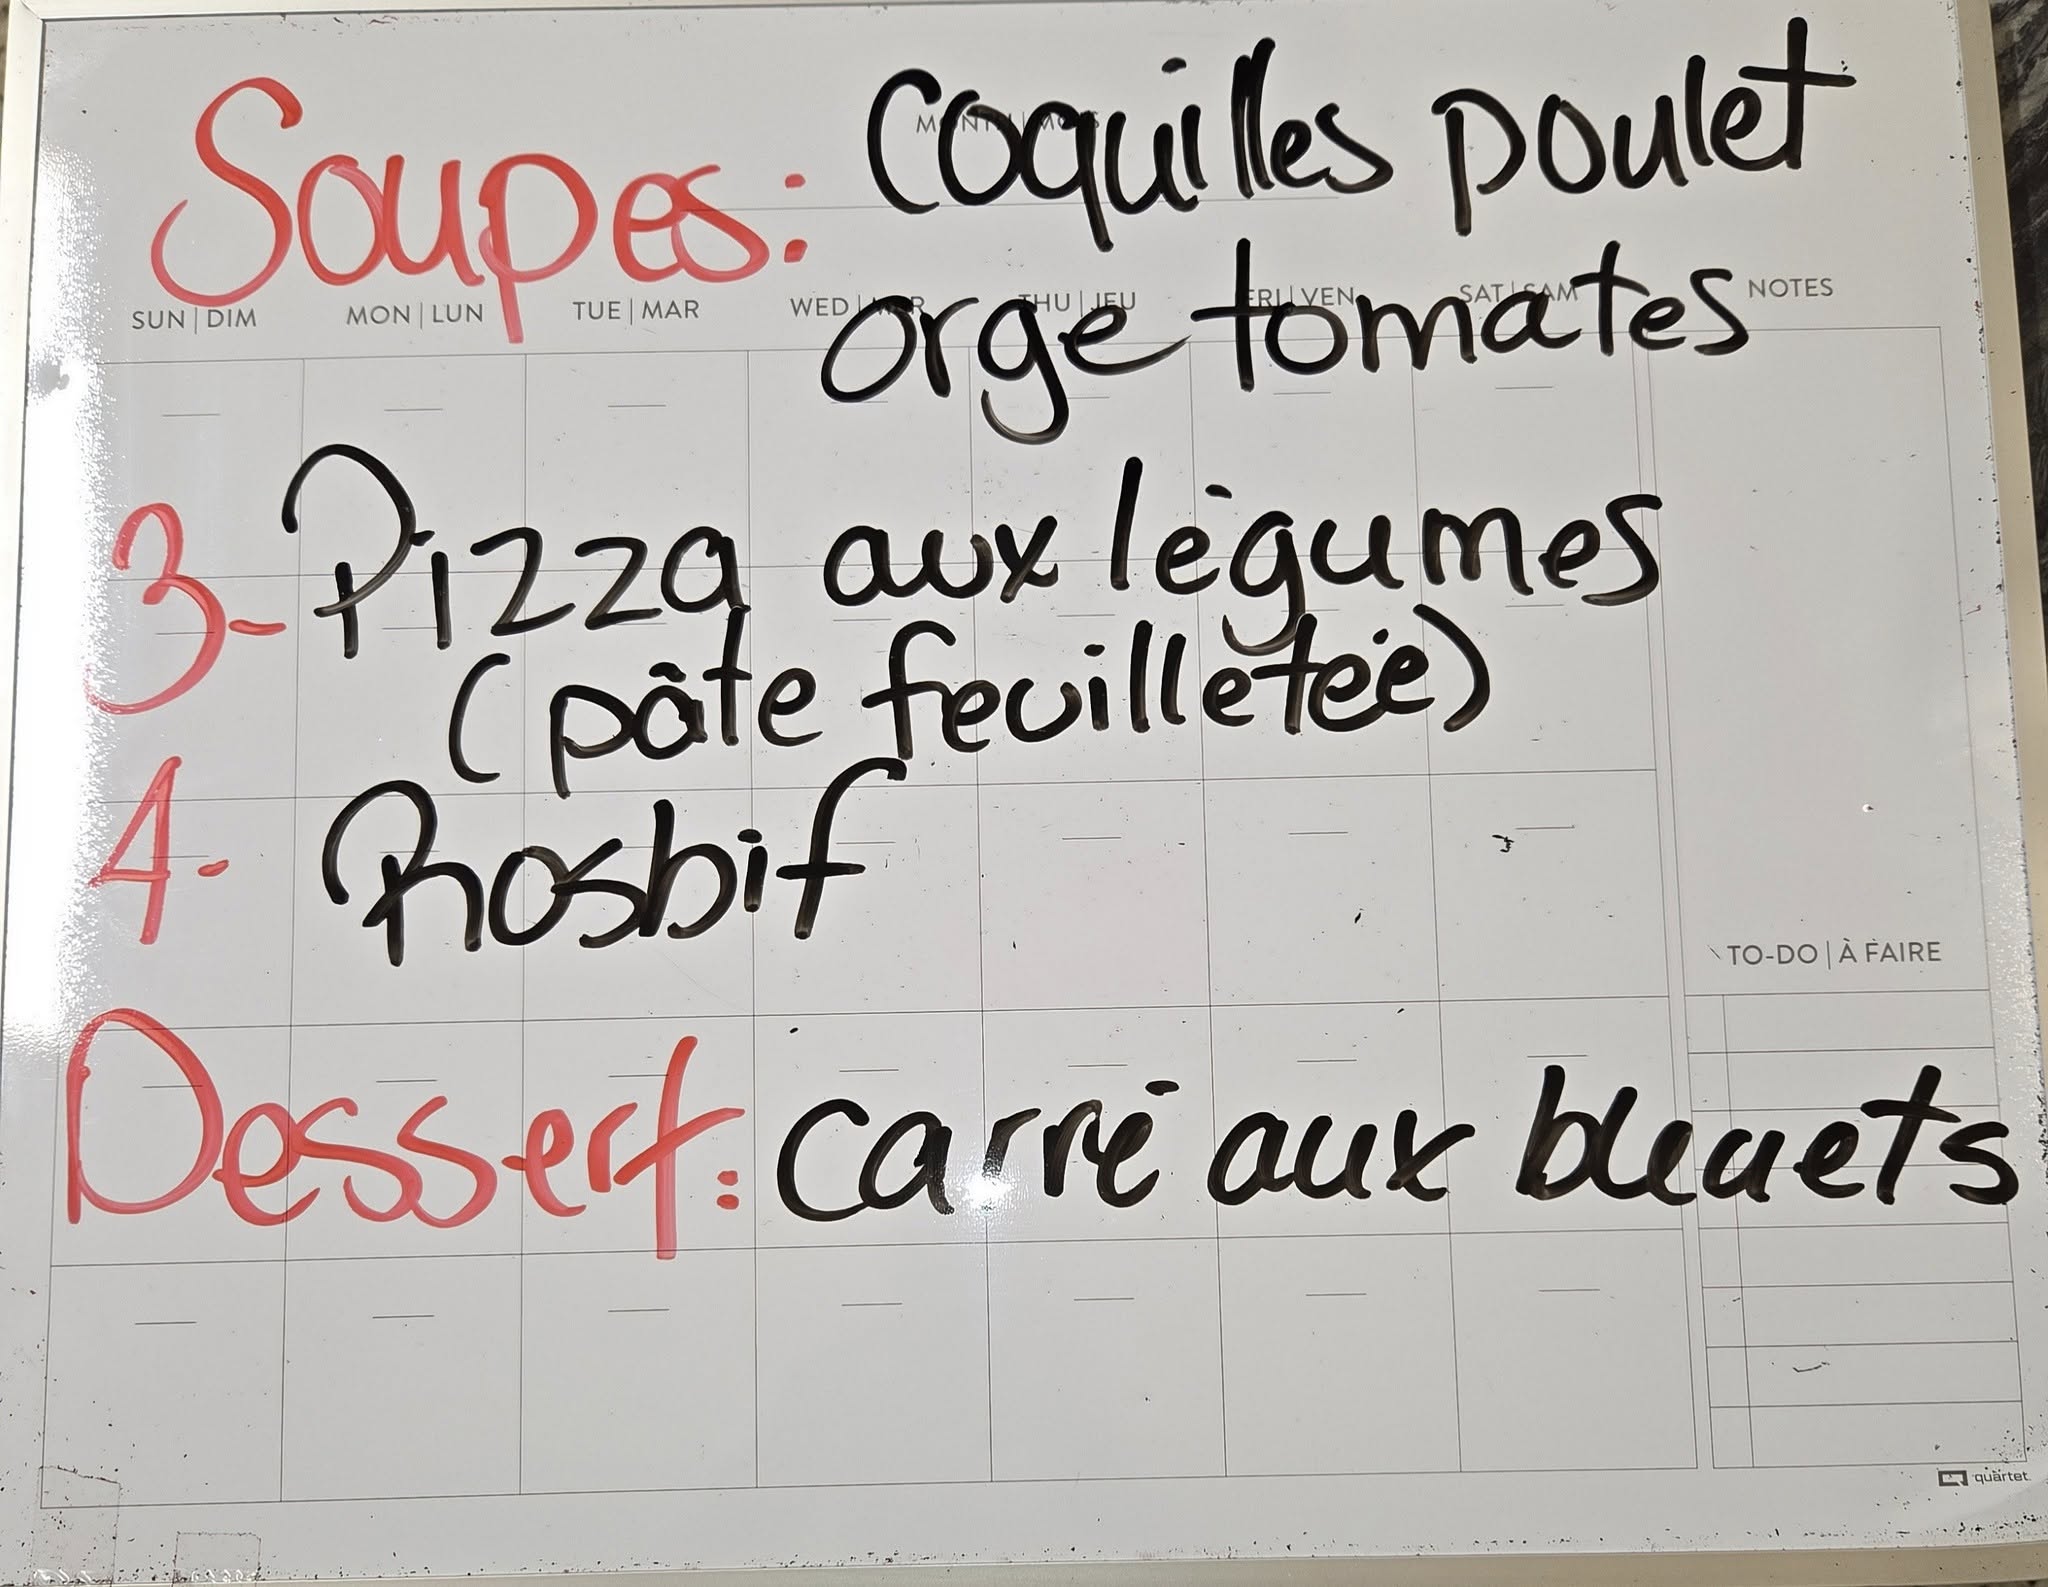 Soupes: Coquilles poulet
MONTH | MOIS
orge tomates
SUN | DIM MON | LUN TUE | MAR WED | MER THU | JEU FRI | VEN SAT | SAM NOTES
3- Pizza aux légumes
(pâte feuilletée)
4- Rosbif
TO-DO | À FAIRE
Dessert: Carré aux bleuets
quartet